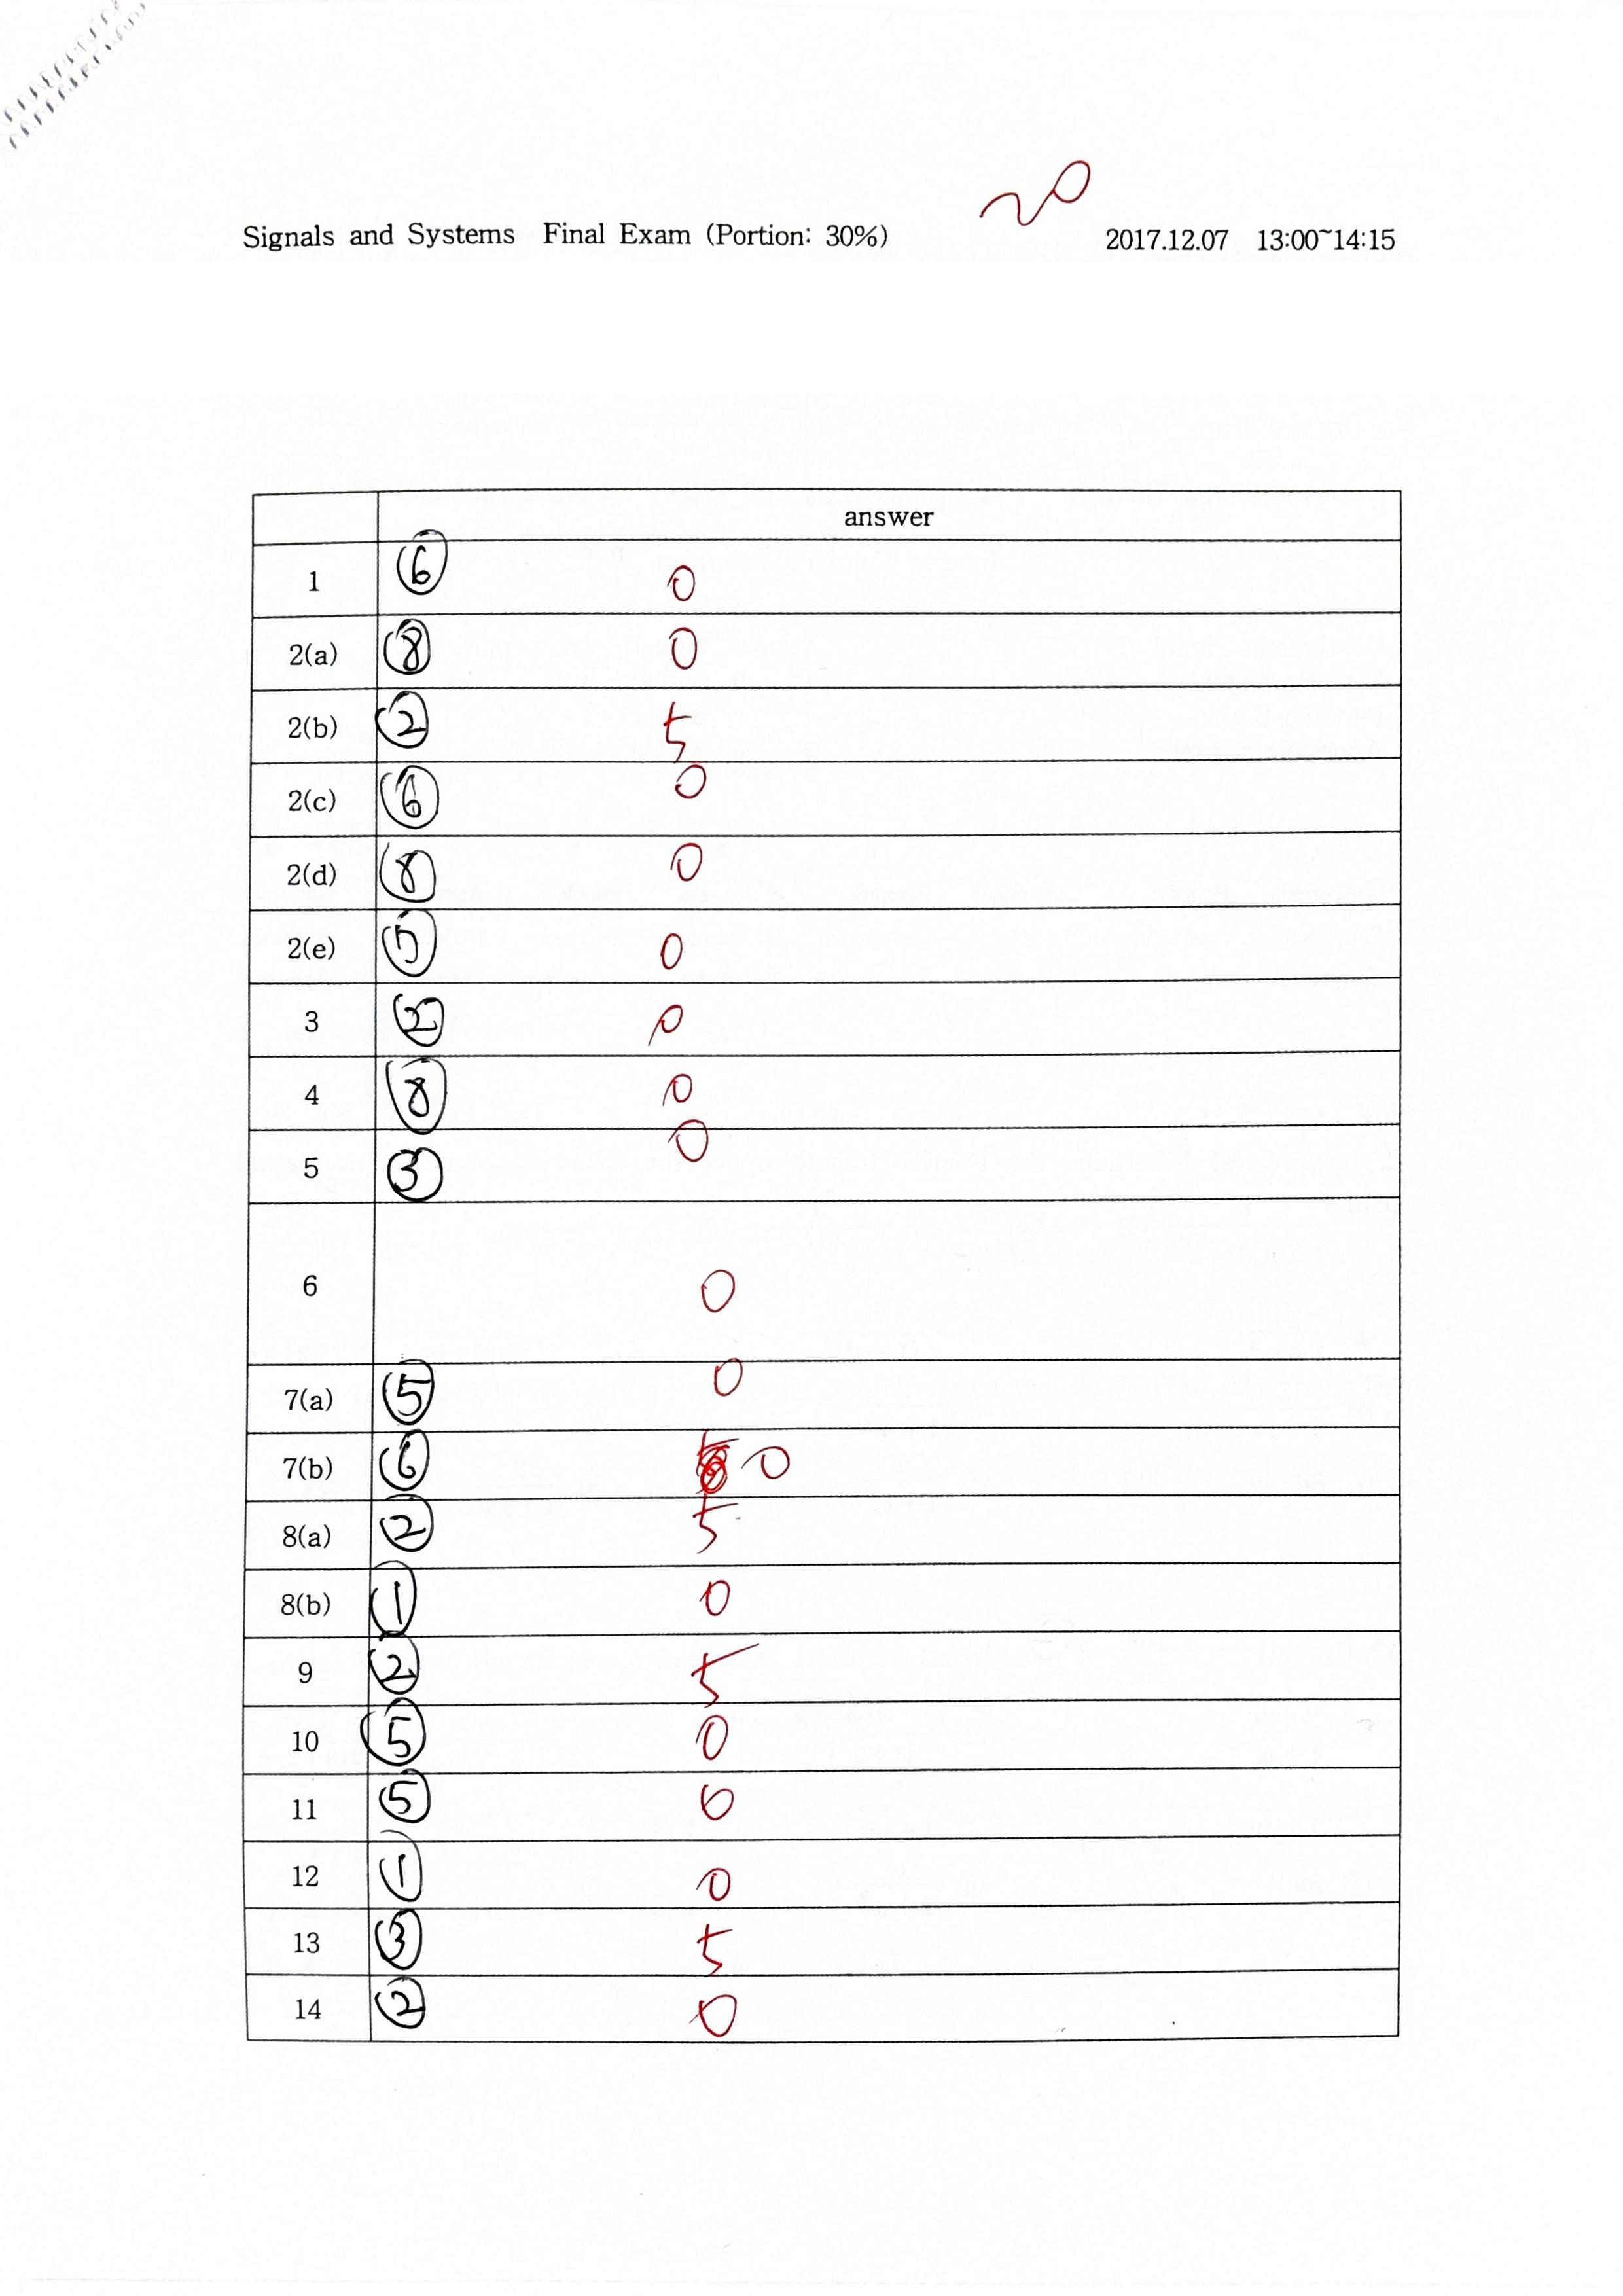 20
Signals and Systems Final Exam (Portion: 30%) 2017.12.07 13:00~14:15
answer
1 ⑥ 0
2(a) ⑧ 0
2(b) ② 5
2(c) ⑥ 0
2(d) ⑧ 0
2(e) ⑤ 0
3 ② 0
4 ⑧ 0
5 ③ 0
6 0
7(a) ⑤ 0
7(b) ⑥ 0
8(a) ② 5
8(b) ① 0
9 ② 5
10 ⑤ 0
11 ⑤ 0
12 ① 0
13 ③ 5
14 ② 0